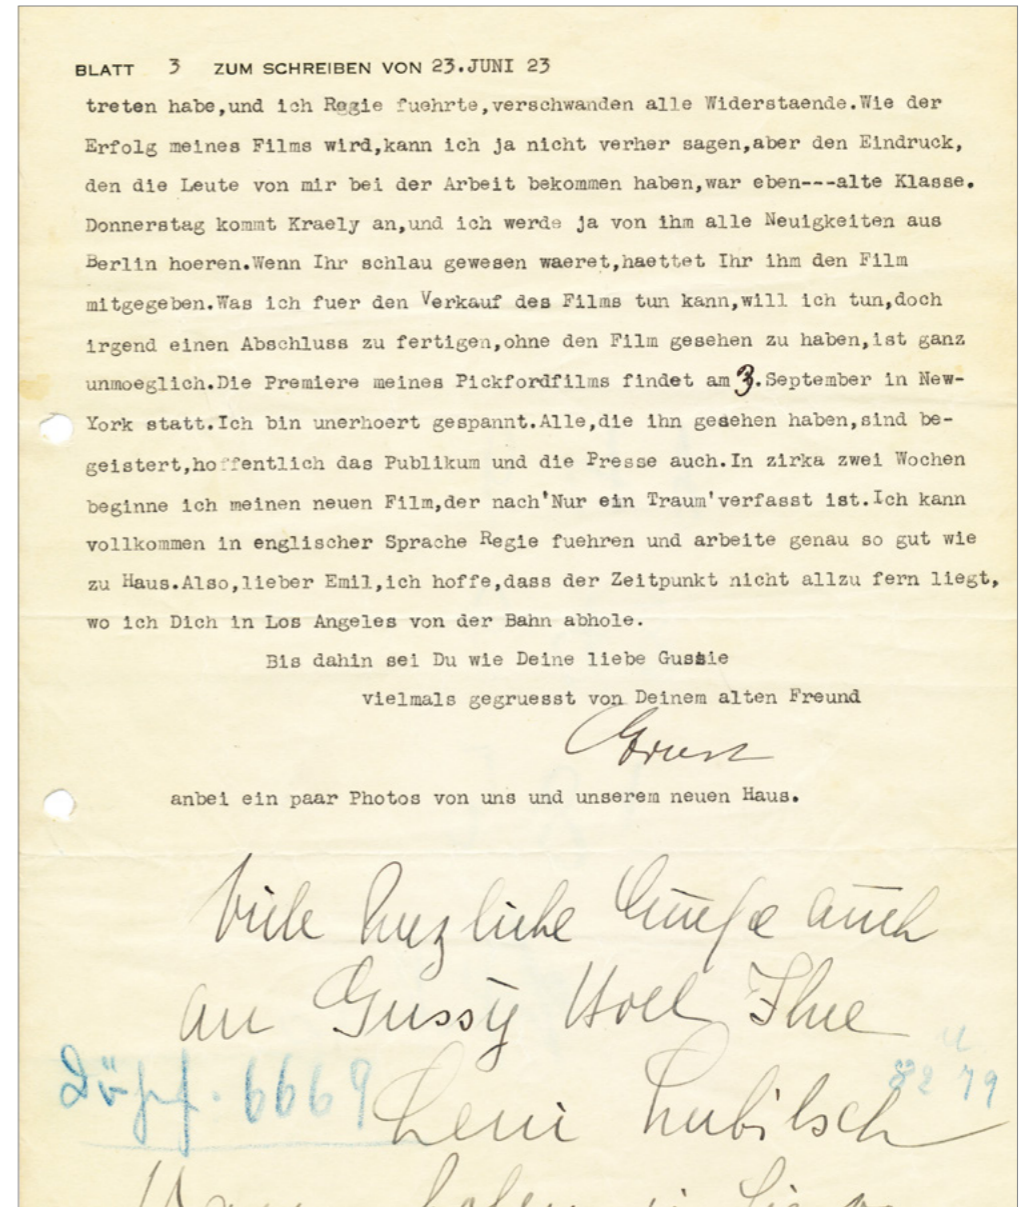 BLATT 3 ZUM SCHREIBEN VON 23.JUNI 23
treten habe,und ich Regie fuehrte,verschwanden alle Widerstaende.Wie der
Erfolg meines Films wird,kann ich ja nicht verher sagen,aber den Eindruck,
den die Leute von mir bei der Arbeit bekommen haben,war eben---alte Klasse.
Donnerstag kommt Kraely an,und ich werde ja von ihm alle Neuigkeiten aus
Berlin hoeren.Wenn Ihr schlau gewesen waeret,haettet Ihr ihm den Film
mitgegeben.Was ich fuer den Verkauf des Films tun kann,will ich tun,doch
irgend einen Abschluss zu fertigen,ohne den Film gesehen zu haben,ist ganz
unmoeglich.Die Premiere meines Pickfordfilms findet am 3.September in New-
York statt.Ich bin unerhoert gespannt.Alle,die ihn gesehen haben,sind be-
geistert,hoffentlich das Publikum und die Presse auch.In zirka zwei Wochen
beginne ich meinen neuen Film,der nach'Nur ein Traum'verfasst ist.Ich kann
vollkommen in englischer Sprache Regie fuehren und arbeite genau so gut wie
zu Haus.Also,lieber Emil,ich hoffe,dass der Zeitpunkt nicht allzu fern liegt,
wo ich Dich in Los Angeles von der Bahn abhole.
Bis dahin sei Du wie Deine liebe Gussie
vielmals gegruesst von Deinem alten Freund
Ernst
anbei ein paar Photos von uns und unserem neuen Haus.
Viele herzliche Grüße auch
an Gussy Holl Ihre
6669 82 79
Leni Lubitsch